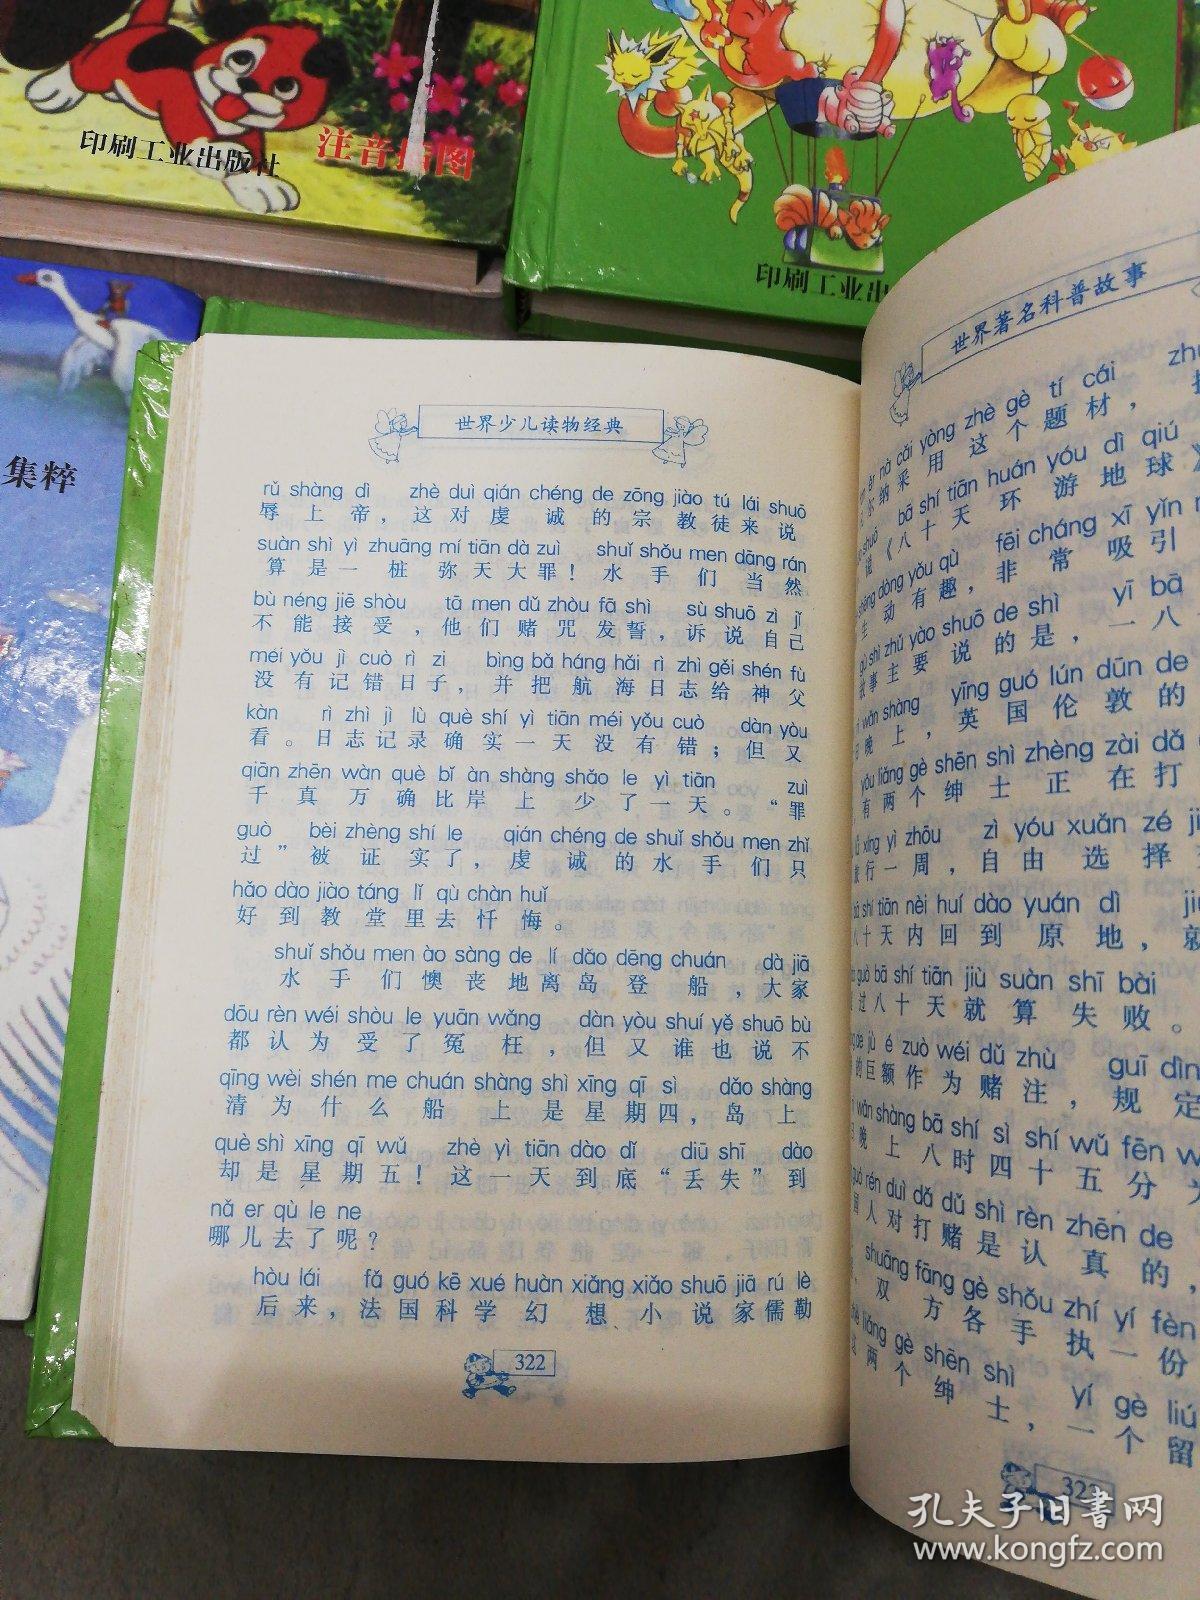 印刷工业出版社
注音插图
印刷工业出
集粹
世界少儿读物经典
rǔ shàng dì zhè duì qián chéng de zōng jiào tú lái shuō
辱上帝，这对虔诚的宗教徒来说
suàn shì yì zhuāng mí tiān dà zuì shuǐ shǒu men dāng rán
算是一桩弥天大罪！水手们当然
bù néng jiē shòu tā men dǔ zhòu fā shì sù shuō zì jǐ
不能接受，他们赌咒发誓，诉说自己
méi yǒu jì cuò rì zi bìng bǎ háng hǎi rì zhì gěi shén fù
没有记错日子，并把航海日志给神父
kàn rì zhì jì lù què shí yì tiān méi yǒu cuò dàn yòu
看。日志记录确实一天没有错；但又
qiān zhēn wàn què bǐ àn shàng shǎo le yì tiān zuì
千真万确比岸上少了一天。“罪
guò bèi zhèng shí le qián chéng de shuǐ shǒu men zhǐ
过”被证实了，虔诚的水手们只
hǎo dào jiào táng lǐ qù chàn huǐ
好到教堂里去忏悔。
shuǐ shǒu men ào sàng de lí dǎo dēng chuán dà jiā
水手们懊丧地离岛登船，大家
dōu rèn wéi shòu le yuān wǎng dàn yòu shuí yě shuō bù
都认为受了冤枉，但又谁也说不
qīng wèi shén me chuán shàng shì xīng qī sì dǎo shàng
清为什么船上是星期四，岛上
què shì xīng qī wǔ zhè yì tiān dào dǐ diū shī dào
却是星期五！这一天到底“丢失”到
nǎ er qù le ne
哪儿去了呢？
hòu lái fǎ guó kē xué huàn xiǎng xiǎo shuō jiā rú lè
后来，法国科学幻想小说家儒勒
322
世界著名科普故事
nà cǎi yòng zhè gè tí cái
尔纳采用这个题材，
shuō bā shí tiān huán yóu dì qiú
说《八十天环游地球
shēng dòng yǒu qù fēi cháng xī yǐn
生动有趣，非常吸引
gù shì zhǔ yào shuō de shì yī bā
故事主要说的是，一八
wǎn shàng yīng guó lún dūn de
日晚上，英国伦敦的
yǒu liǎng gè shēn shì zhèng zài dǎ
有两个绅士正在打
lǚ xíng yì zhōu zì yóu xuǎn zé
旅行一周，自由选择
bā shí tiān nèi huí dào yuán dì
八十天内回到原地，就
guò bā shí tiān jiù suàn shī bài
过八十天就算失败。
de jù é zuò wéi dǔ zhù guī dìn
的巨额作为赌注，规定
wǎn shàng bā shí sì shí wǔ fēn
日晚上八时四十五分为
guó rén duì dǎ dǔ shì rèn zhēn de
国人对打赌是认真的，
shuāng fāng gè shǒu zhí yí fèn
双方各手执一份
liǎng gè shēn shì yí gè liú
这两个绅士，一个留
323
孔夫子旧书网
www.kongfz.com